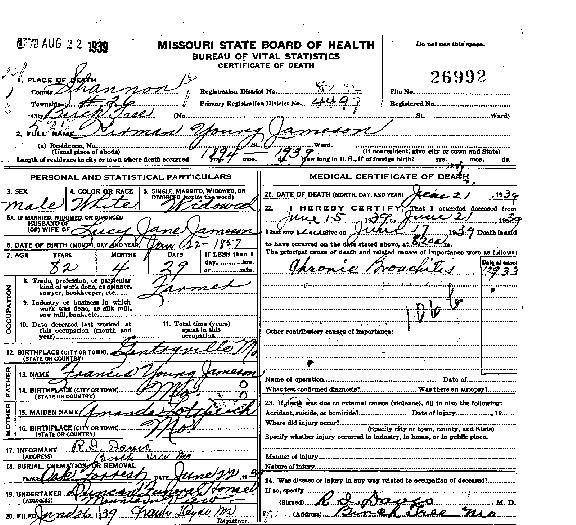 AUG 22 1939
MISSOURI STATE BOARD OF HEALTH
BUREAU OF VITAL STATISTICS
CERTIFICATE OF DEATH
Do not use this space.
26992
1. PLACE OF DEATH
County Shannon
Registration District No.
File No.
Township
Primary Registration District No.
Registered No.
City Birch Tree (No. St. Ward)
2. FULL NAME Young Jameson
(a) Residence, No. St. Ward.
(Usual place of abode) (If nonresident, give city or town and State)
Length of residence in city or town where death occurred 1894 mos. 1939 How long in U. S., if of foreign birth?
PERSONAL AND STATISTICAL PARTICULARS
MEDICAL CERTIFICATE OF DEATH
3. SEX male
4. COLOR OR RACE White
5. SINGLE, MARRIED, WIDOWED, OR DIVORCED Widowed
5A. IF MARRIED, WIDOWED, OR DIVORCED
HUSBAND OF
(OR) WIFE OF Lucy Jane Jameson
6. DATE OF BIRTH (MONTH, DAY AND YEAR) 1857
7. AGE YEARS MONTHS DAYS IF LESS than 1
82 4 29
OCCUPATION
8. Trade, profession, or particular kind of work done, as spinner, sawyer, bookkeeper, etc. Farmer
9. Industry or business in which work was done, as silk mill, saw mill, bank, etc.
10. Date deceased last worked at this occupation (month and year)
11. Total time (years) spent in this occupation
12. BIRTHPLACE (CITY OR TOWN) Mo
(STATE OR COUNTRY)
FATHER
13. NAME Francis Young Jameson
14. BIRTHPLACE (CITY OR TOWN) Mo
(STATE OR COUNTRY)
MOTHER
15. MAIDEN NAME
16. BIRTHPLACE (CITY OR TOWN) Mo
(STATE OR COUNTRY)
17. INFORMANT
(ADDRESS) Birch Tree Mo
18. BURIAL, CREMATION, OR REMOVAL
PLACE Oak Forrest DATE June 22 1939
19. UNDERTAKER Duncan Funeral Home
(ADDRESS)
20. FILED 39
Registrar
21. DATE OF DEATH (MONTH, DAY, AND YEAR) June 21 1939
22. I HEREBY CERTIFY, That I attended deceased from
June 15 1939, June 21 1939
I last saw alive on June 17 1939 Death is said
to have occurred on the date stated above, at
The principal cause of death and related causes of importance were as follows:
Date of onset
Chronic Bronchitis 1933
106b
Other contributory causes of importance:
Name of operation Date of
What test confirmed diagnosis? Was there an autopsy?
23. If death was due to external causes (violence), fill in also the following:
Accident, suicide, or homicide? Date of injury , 19
Where did injury occur?
(Specify city or town, county, and State)
Specify whether injury occurred in industry, in home, or in public place.
Manner of injury
Nature of injury
24. Was disease or injury in any way related to occupation of deceased?
If so, specify
(Signed) R. D. Davis M. D.
(Address) Birch Tree Mo